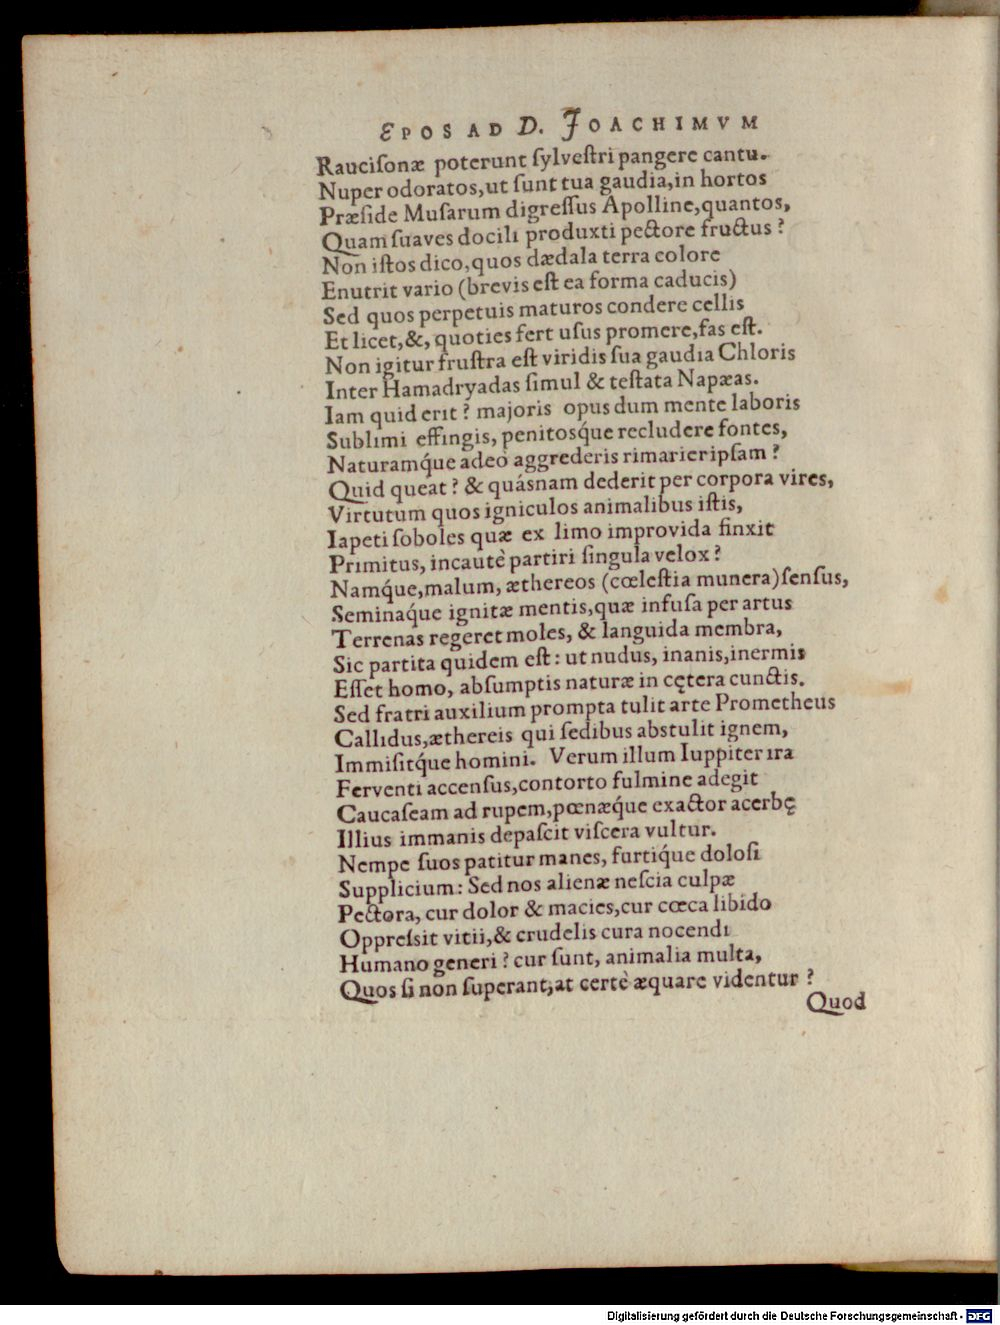 EPOS AD D. JOACHIMVM
Rauciſonæ poterunt ſylveſtri pangere cantu.
Nuper odoratos,ut ſunt tua gaudia,in hortos
Præſide Muſarum digreſſus Apolline,quantos,
Quam ſuaves docili produxti pectore fructus ?
Non iſtos dico,quos dædala terra colore
Enutrit vario (brevis eſt ea forma caducis)
Sed quos perpetuis maturos condere cellis
Et licet,&, quoties fert uſus promere,fas eſt.
Non igitur fruſtra eſt viridis ſua gaudia Chloris
Inter Hamadryadas ſimul & teſtata Napæas.
Iam quid erit ? majoris opus dum mente laboris
Sublimi effingis, penitosq́ue recludere fontes,
Naturamq́ue adeò aggrederis rimarier ipſam ?
Quid queat ? & quásnam dederit per corpora vires,
Virtutum quos igniculos animalibus iſtis,
Iapeti ſoboles quæ ex limo improvida finxit
Primitus, incautè partiri ſingula velox ?
Namq́ue,malum, æthereos (cœleſtia munera)ſenſus,
Seminaq́ue ignitæ mentis,quæ infuſa per artus
Terrenas regeret moles, & languida membra,
Sic partita quidem eſt : ut nudus, inanis,inermis
Eſſet homo, abſumptis naturæ in cętera cunctis.
Sed fratri auxilium prompta tulit arte Prometheus
Callidus,æthereis qui ſedibus abstulit ignem,
Immiſitq́ue homini. Verum illum Iuppiter ira
Ferventi accenſus,contorto fulmine adegit
Caucaſeam ad rupem,pœnæque exactor acerbę
Illius immanis depaſcit viſcera vultur.
Nempe ſuos patitur manes, furtiq́ue doloſi
Supplicium : Sed nos alienæ neſcia culpæ
Pectora, cur dolor & macies,cur cœca libido
Oppreſsit vitii,& crudelis cura nocendi
Humano generi ? cur ſunt, animalia multa,
Quos ſi non ſuperant,at certè æquare videntur ?
Quod
Digitalisierung gefördert durch die Deutsche Forschungsgemeinschaft - DFG